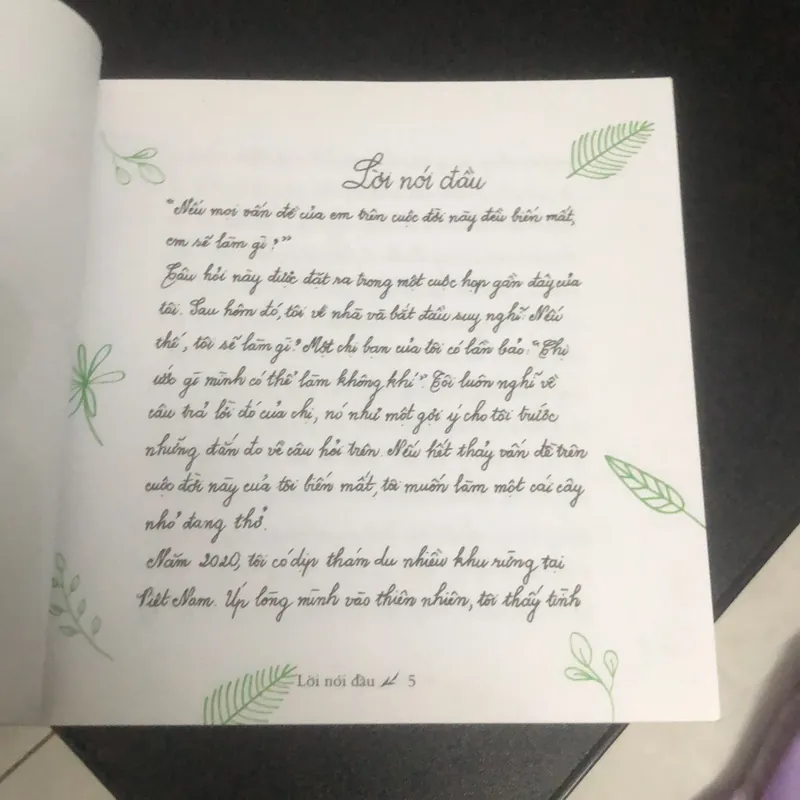 Lời nói đầu
"Nếu mọi vấn đề của em trên cuộc đời này đều biến mất,
em sẽ làm gì?"
Câu hỏi này được đặt ra trong một cuộc họp gần đây của
tôi. Sau hôm đó, tôi về nhà và bắt đầu suy nghĩ: Nếu
thế, tôi sẽ làm gì? Một chị bạn của tôi có lần bảo: "Chị
ước gì mình có thể làm không khí". Tôi luôn nghĩ về
câu trả lời đó của chị, nó như một gợi ý cho tôi trước
những đắn đo về câu hỏi trên. Nếu hết thảy vấn đề trên
cuộc đời này của tôi biến mất, tôi muốn làm một cái cây
nhỏ đang thở.
Năm 2020, tôi có dịp thám du nhiều khu rừng tại
Việt Nam. Úp lòng mình vào thiên nhiên, tôi thấy tình
Lời nói đầu 5